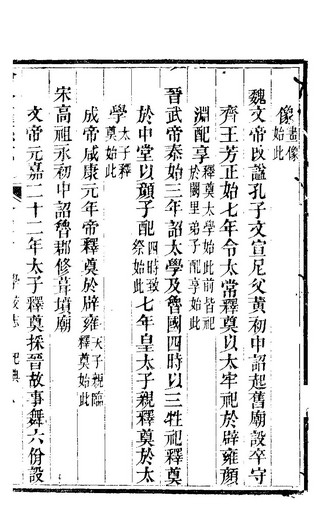 像畫像始此
魏文帝改諡孔子文宣尼父黃初中詔起舊廟設卒守
齊王芳正始七年令太常釋奠以太牢祀於辟雍顏
淵配享釋奠太學始此前皆祀於闕里弟子配享始此
晉武帝泰始三年詔太學及魯國四時以三牲祀釋奠
於中堂以顏子配四時致祭始此七年皇太子親釋奠於太
學太子釋奠始此
成帝咸康元年帝釋奠於辟雍天子親臨釋奠始此
宋高祖永初中詔魯郡修葺墳廟
文帝元嘉二十二年太子釋奠採晉故事舞六佾設
學校志 祀典 八